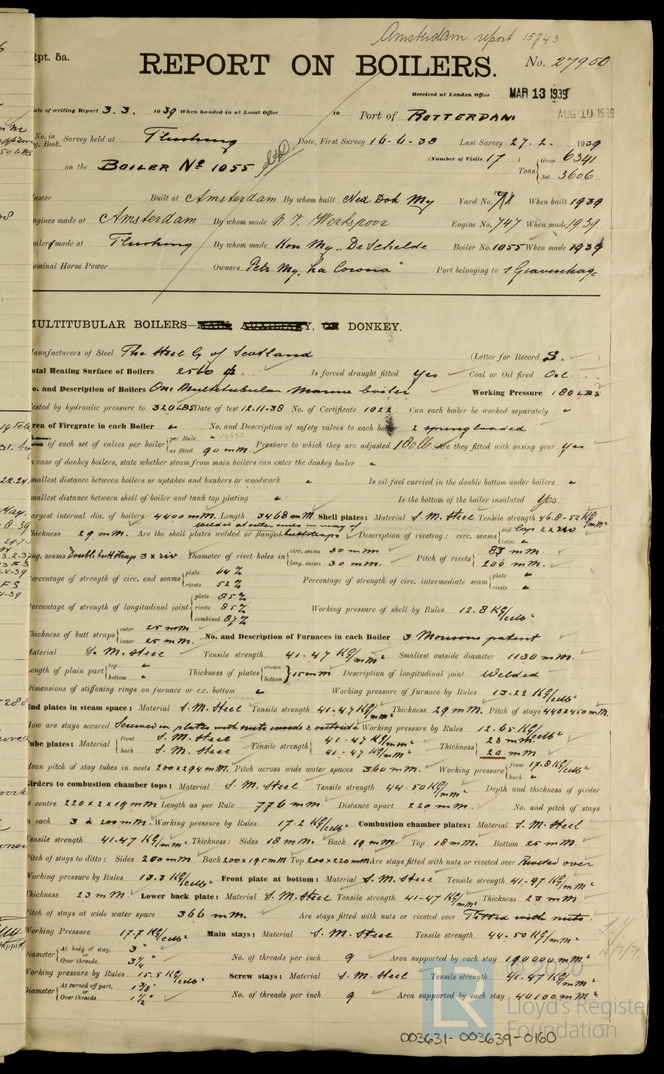 Amsterdam report 15743
Rpt. 5a.
REPORT ON BOILERS.
No. 27950
Received at London Office MAR 13 1939
AUG 10 1939
Date of writing Report 3.3. 1939 When handed in at Local Office 19 Port of ROTTERDAM
No. in Reg. Book. Survey held at Flushing Date, First Survey 16-6-38 Last Survey 27-2- 1939
on the BOILER No 1055 (Number of Visits 17) Tons Gross 6341 Net 3606
Master Built at Amsterdam By whom built Ned Dok My Yard No. When built 1939
Engines made at Amsterdam By whom made N.V. Werkspoor Engine No. 747 When made 1939
Boilers made at Flushing By whom made Kon. My. "De Schelde Boiler No. 1055 When made 1939
Nominal Horse Power Owners Petr. My. "La Corona" Port belonging to s'Gravenhage
MULTITUBULAR BOILERS—MAIN, AUXILIARY, OR DONKEY.
Manufacturers of Steel The Steel Co of Scotland (Letter for Record S.)
Total Heating Surface of Boilers 2566 Is forced draught fitted Yes Coal or Oil fired Oil
No. and Description of Boilers One Multitubular marine boiler Working Pressure 180 LBS
Tested by hydraulic pressure to 320 LBS Date of test 12-11-38 No. of Certificate 1022 Can each boiler be worked separately "
Area of Firegrate in each Boiler " No. and Description of safety valves to each boiler 2 springloaded
of each set of valves per boiler per Rule as fitted 90 mm. Pressure to which they are adjusted 180 lb Are they fitted with easing gear yes
In case of donkey boilers, state whether steam from main boilers can enter the donkey boiler "
Smallest distance between boilers or uptakes and bunkers or woodwork " Is oil fuel carried in the double bottom under boilers "
Smallest distance between shell of boiler and tank top plating " Is the bottom of the boiler insulated Yes
Largest internal dia. of boilers 4400 mm. Length 3468 mm. Shell plates: Material S.M. Steel Tensile strength 46.8-52 KG/mm²
Thickness 29 mm. Are the shell plates welded or flanged Welded at outer ends in way of buttstraps Description of riveting: circ. seams end Lap 2 x riv inter. "
long. seams Double buttstrap 3 x riv Diameter of rivet holes in circ. seams 30 mm. long. seams 30 mm. Pitch of rivets 83 mm. 200 mm.
Percentage of strength of circ. end seams plate 64% rivets 52% Percentage of strength of circ. intermediate seam plate " rivets "
Percentage of strength of longitudinal joint plate 85% rivets 85% combined 87% Working pressure of shell by Rules 12.8 KG/cub²
Thickness of butt straps outer 25 mm inner 25 mm. No. and Description of Furnaces in each Boiler 3 Morrison patent
Material S.M. Steel Tensile strength 41-47 KG/mm² Smallest outside diameter 1130 mm.
Length of plain part top " bottom " Thickness of plates crown bottom 15 mm Description of longitudinal joint Welded
Dimensions of stiffening rings on furnace or c.c. bottom " Working pressure of furnace by Rules 13.22 KG/cub²
End plates in steam space: Material S.M. Steel Tensile strength 41-47 KG/mm² Thickness 29 mm. Pitch of stays 440 x 450 mm.
How are stays secured Screwed in plates with nuts inside & outside Working pressure by Rules 12.65 KG/cub²
Tube plates: Material front S.M. Steel back S.M. Steel Tensile strength 41-47 KG/mm² 41-47 KG/mm² Thickness 23 mm 20 mm
Mean pitch of stay tubes in nests 200 x 294 mm. Pitch across wide water spaces 360 mm. Working pressure front 17.8 KG/cub² back "
Girders to combustion chamber tops: Material S.M. Steel Tensile strength 44-50 KG/mm² Depth and thickness of girder
at centre 220 x 2 x 19 mm Length as per Rule 776 mm. Distance apart 220 mm. No. and pitch of stays
in each 3 à 200 mm. Working pressure by Rules 17.2 KG/cub² Combustion chamber plates: Material S.M. Steel
Tensile strength 41-47 KG/mm² Thickness: Sides 18 mm. Back 19 mm. Top 18 mm. Bottom 25 mm.
Pitch of stays to ditto: Sides 200 mm Back 200 x 195 mm Top 200 x 220 mm Are stays fitted with nuts or riveted over Riveted over
Working pressure by Rules 13.3 KG/cub² Front plate at bottom: Material S.M. Steel Tensile strength 41-47 KG/mm²
Thickness 23 mm. Lower back plate: Material S.M. Steel Tensile strength 41-47 KG/mm² Thickness 23 mm.
Pitch of stays at wide water space 366 mm. Are stays fitted with nuts or riveted over Fitted with nuts
Working Pressure 17.7 KG/cub² Main stays: Material S.M. Steel Tensile strength 44-50 KG/mm²
Diameter At body of stay, 3" or Over threads 3¼" No. of threads per inch 9 Area supported by each stay 190000 mm²
Working pressure by Rules 15.5 KG/cub² Screw stays: Material S.M. Steel Tensile strength 41-47 KG/mm²
Diameter At turned off part, or Over threads 1½" No. of threads per inch 9 Area supported by each stay 40100 mm²
Lloyd's Register
Foundation
003631-003639-0160